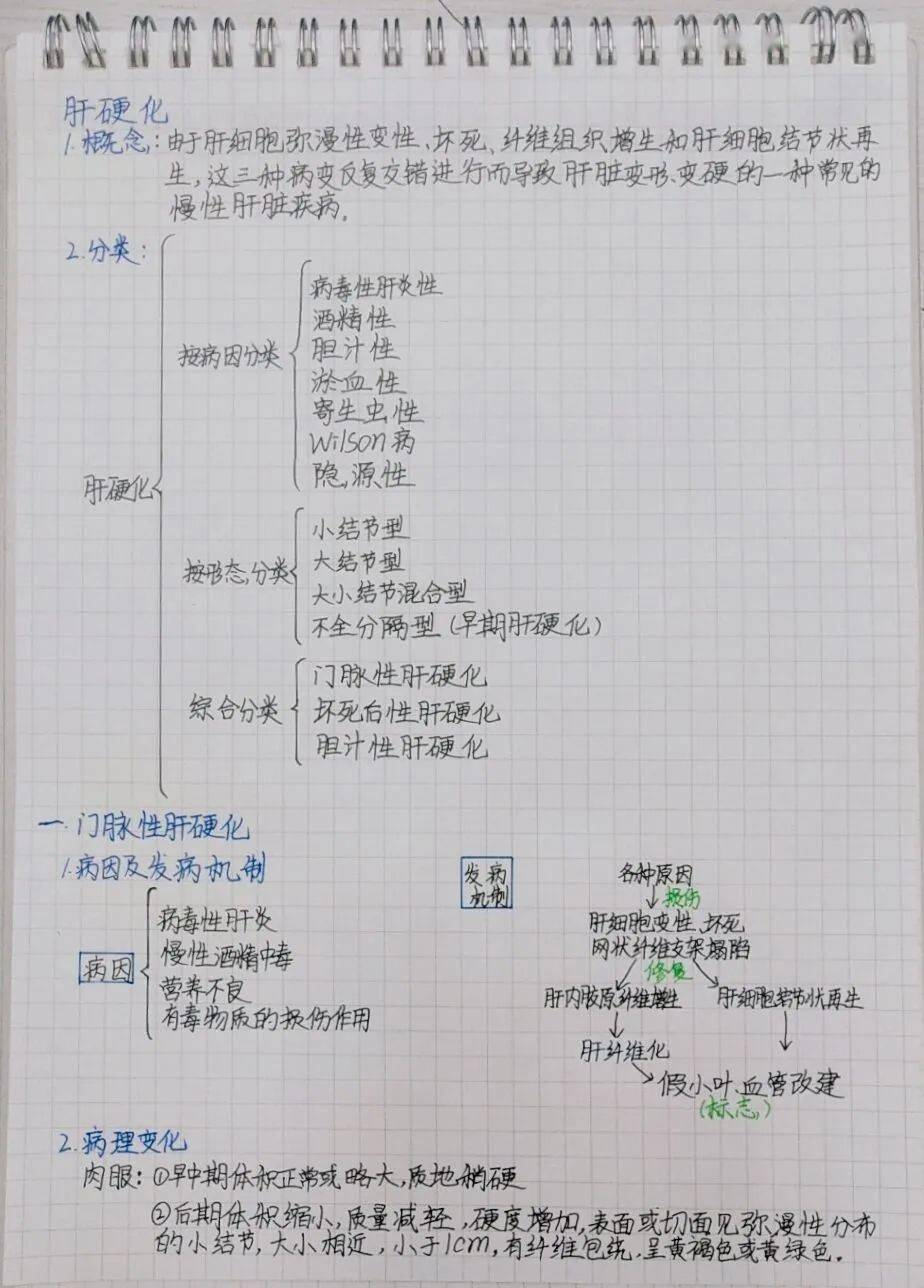 肝硬化
1.概念:由于肝细胞弥漫性变性、坏死、纤维组织增生和肝细胞结节状再
生,这三种病变反复交错进行而导致肝脏变形、变硬的一种常见的
慢性肝脏疾病.
2.分类:
肝硬化
按病因分类
病毒性肝炎性
酒精性
胆汁性
淤血性
寄生虫性
Wilson病
隐源性
按形态分类
小结节型
大结节型
大小结节混合型
不全分隔型(早期肝硬化)
综合分类
门脉性肝硬化
坏死后性肝硬化
胆汁性肝硬化
一.门脉性肝硬化
1.病因及发病机制
病因
病毒性肝炎
慢性酒精中毒
营养不良
有毒物质的损伤作用
发病
机制
各种原因
损伤
肝细胞变性、坏死
网状纤维支架塌陷
修复
肝内胶原纤维增生
肝细胞结节状再生
肝纤维化
假小叶、血管改建
(标志)
2.病理变化
肉眼:①早中期体积正常或略大,质地稍硬
②后期体积缩小,质量减轻,硬度增加,表面或切面见弥漫性分布
的小结节,大小相近,小于1cm,有纤维包绕,呈黄褐色或黄绿色.